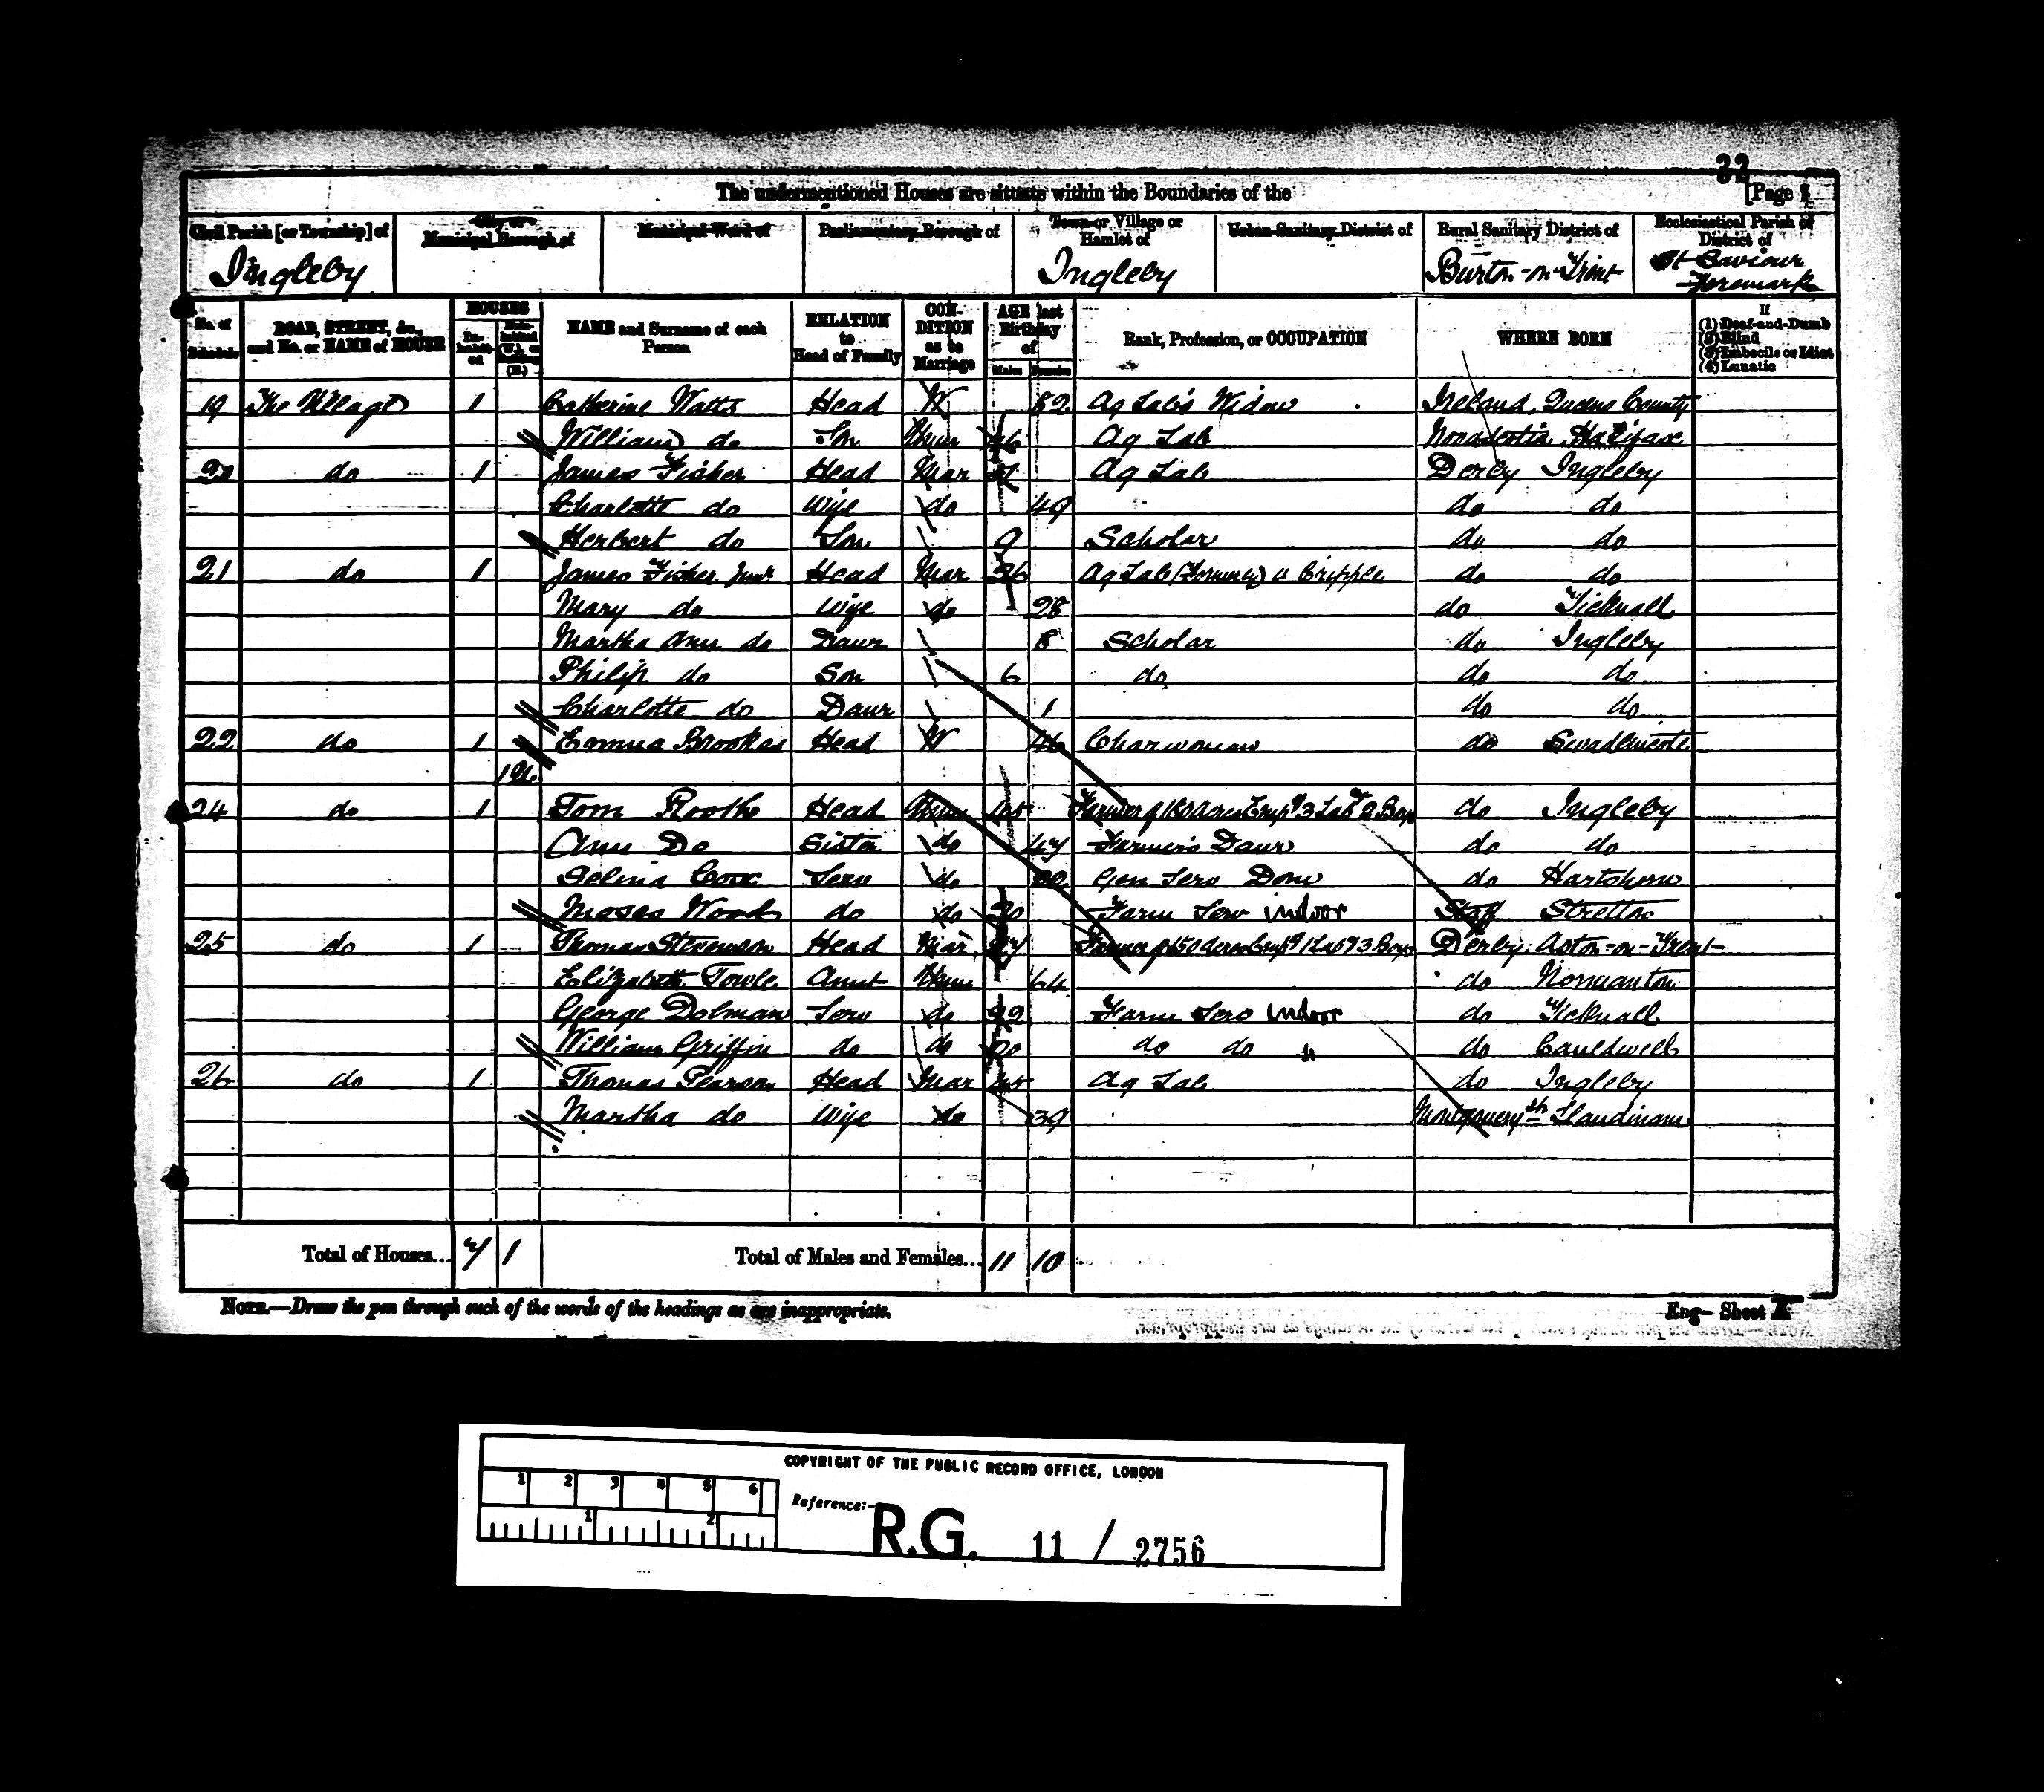 32
The undermentioned Houses are situate within the Boundaries of the [Page
Civil Parish [or Township] of City or Municipal Borough of Municipal Ward of Parliamentary Borough of Town or Village or Hamlet of Urban Sanitary District of Rural Sanitary District of Ecclesiastical Parish or District of
Ingleby Ingleby Burton-on-Trent St Saviour Foremark
No. of Schedule ROAD, STREET, &c., and No. or NAME of HOUSE HOUSES In-habit-ed Unin-habited (U.), or Building (B.) NAME and Surname of each Person RELATION to Head of Family CON-DITION as to Marriage AGE last Birthday of Males Females Rank, Profession, or OCCUPATION WHERE BORN If (1) Deaf-and-Dumb (2) Blind (3) Imbecile or Idiot (4) Lunatic
19 The Village 1 Catherine Watts Head W 82 Ag Lab's Widow Ireland, Queens County
William do Son Unm 46 Ag Lab Novascotia Halifax
20 do 1 James Fisher Head Mar Ag Lab Derby Ingleby
Charlotte do Wife do 49 do do
Herbert do Son 9 Scholar do do
21 do 1 James Fisher Junr Head Mar 26 Ag Lab (Formerly) a Cripple do do
Mary do Wife do 28 do Ticknall
Martha Ann do Daur 8 Scholar do Ingleby
Philip do Son 6 do do do
Charlotte do Daur 1 do do
22 do 1 Emma Brookes Head W 46 Charwoman do Swadlincote
1 U.
24 do 1 Tom Roothe Head Unm 45 Farmer of 180 Acres Empg 3 Labs 2 Boys do Ingleby
Ann Do Sister do 47 Farmer's Daur do do
Selina Cox Serv do 20 Gen Serv Dom do Hartshorn
Moses Wood do do 20 Farm Serv indoor Staff Stretton
25 do 1 Thomas Stevenson Head Mar 27 Farmer of 150 Acres Empg 1 Lab 3 Boys Derby Aston-on-Trent
Elizabeth Towle Aunt Unm 64 do Normanton
George Dolman Serv do 22 Farm Serv indoor do Ticknall
William Griffin do do 20 do do " do Cauldwell
26 do 1 Thomas Pearson Head Mar 45 Ag Lab do Ingleby
Martha do Wife do 39 Montgomerysh Llandinam
Total of Houses... 7 1 Total of Males and Females... 11 10
NOTE.—Draw the pen through such of the words of the headings as are inappropriate. Eng— Sheet A
COPYRIGHT OF THE PUBLIC RECORD OFFICE, LONDON
1 2 3 4 5 6
Reference:-
1 2
R.G. 11 / 2756